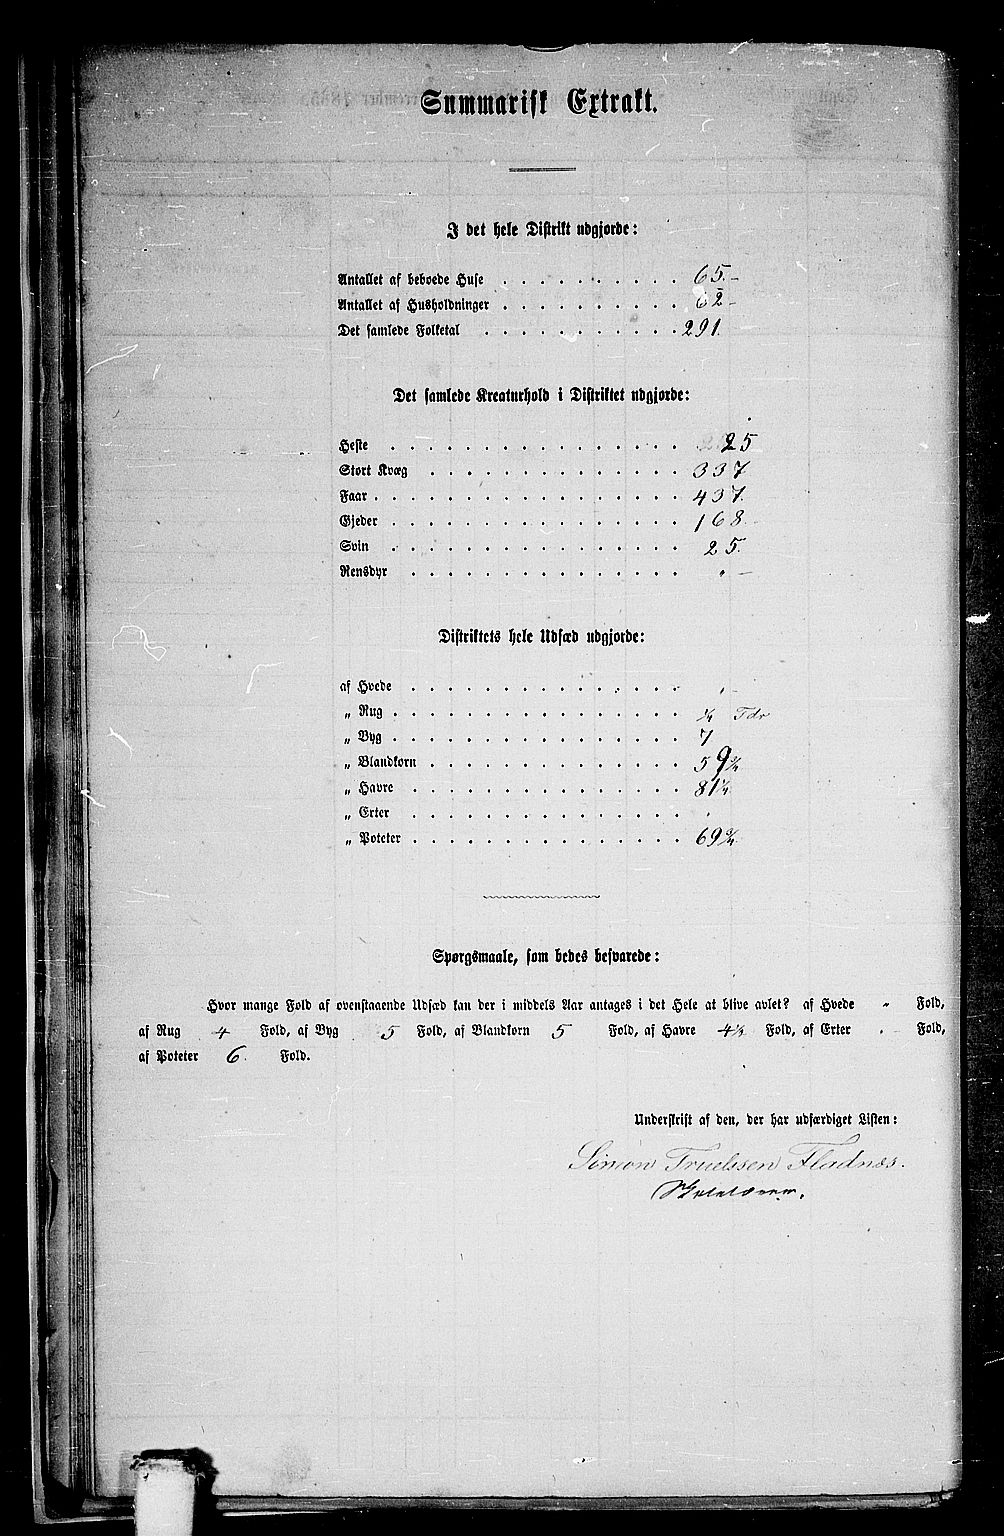 Summarisk Extrakt.
I det hele Distrikt udgjorde:
Antallet af beboede Huse . . . . . . . . . . 65.–
Antallet af Husholdninger . . . . . . . . . . 62–
Det samlede Folketal . . . . . . . . . . . 291.
Det samlede Kreaturhold i Distriktet udgjorde:
Heste . . . . . . . . . . . . . . . . 25
Stort Kvæg . . . . . . . . . . . . . . 337
Faar . . . . . . . . . . . . . . . . . 437.
Gjeder . . . . . . . . . . . . . . . . 168.
Svin . . . . . . . . . . . . . . . . 25.
Rensdyr . . . . . . . . . . . . . . . " –
Distriktets hele Udsæd udgjorde:
af Hvede . . . . . . . . . . . . . . . "
„ Rug . . . . . . . . . . . . . . . . ¼ Tdr
„ Byg . . . . . . . . . . . . . . . . 7
„ Blandkorn . . . . . . . . . . . . . . 59¾
„ Havre . . . . . . . . . . . . . . . 81¼
„ Erter . . . . . . . . . . . . . . . "
„ Poteter . . . . . . . . . . . . . . . 69¾
Spørgsmaale, som bedes besvarede:
Hvor mange Fold af ovenstaaende Udsæd kan der i middels Aar antages i det Hele at blive avlet? af Hvede " Fold,
af Rug 4 Fold, af Byg 5 Fold, af Blandkorn 5 Fold, af Havre 4½ Fold, af Erter " Fold,
af Poteter 6. Fold.
Underskrift af den, der har udfærdiget Listen:
Simon Truelssen Fladnæs.